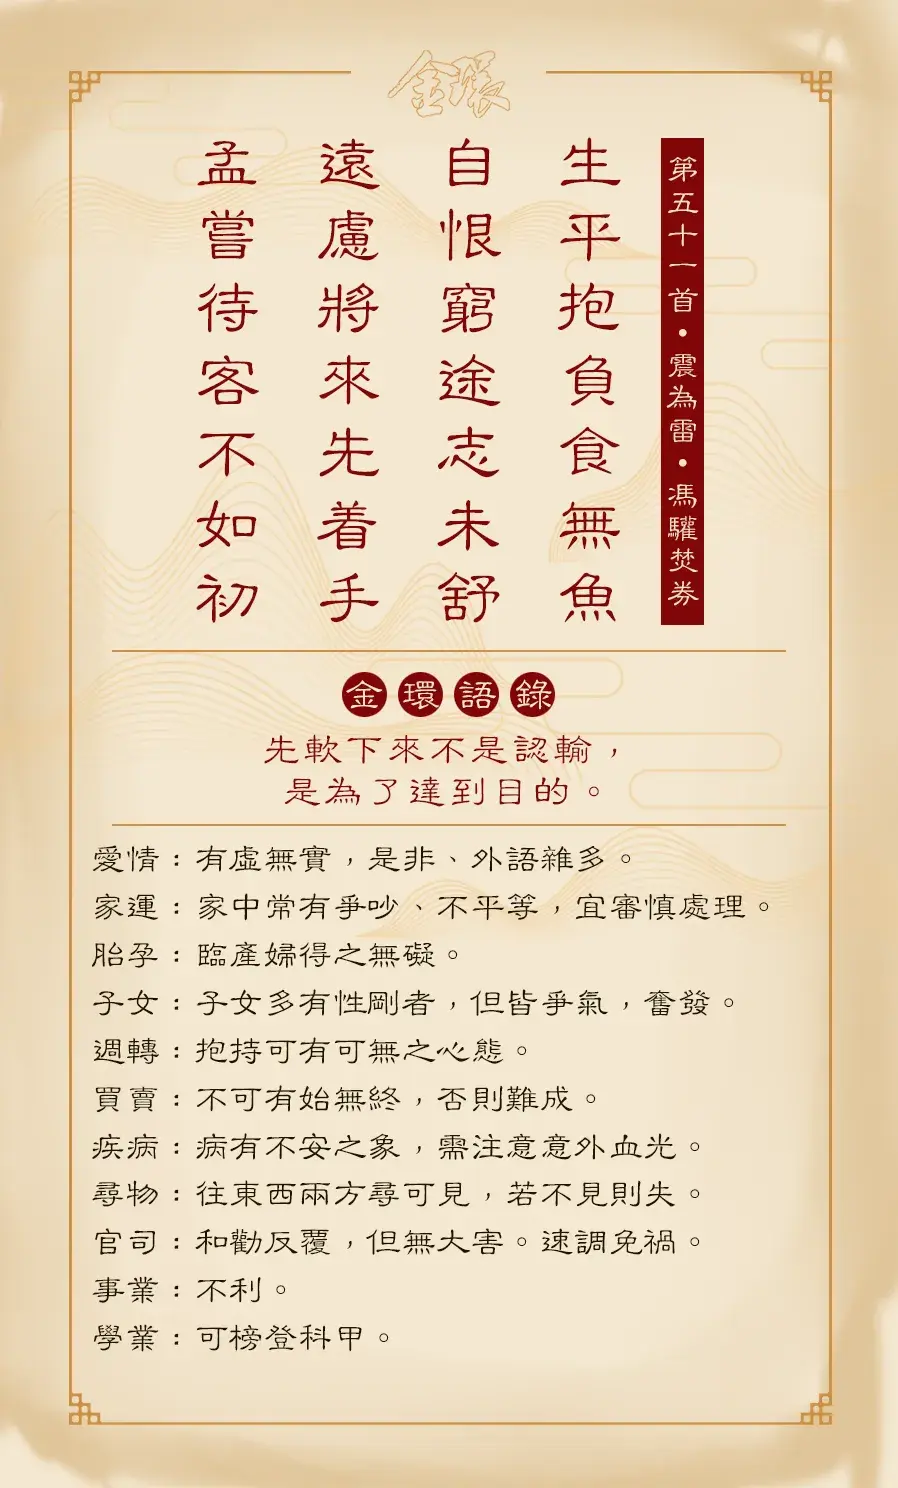 金環
第五十一首・震為雷・馮驩焚券
生平抱負食無魚
自恨窮途志未舒
遠慮將來先着手
孟嘗待客不如初
金環語錄
先軟下來不是認輸，
是為了達到目的。
愛情：有虛無實，是非、外語雜多。
家運：家中常有爭吵、不平等，宜審慎處理。
胎孕：臨產婦得之無礙。
子女：子女多有性剛者，但皆爭氣，奮發。
週轉：抱持可有可無之心態。
買賣：不可有始無終，否則難成。
疾病：病有不安之象，需注意意外血光。
尋物：往東西兩方尋可見，若不見則失。
官司：和勸反覆，但無大害。速調免禍。
事業：不利。
學業：可榜登科甲。